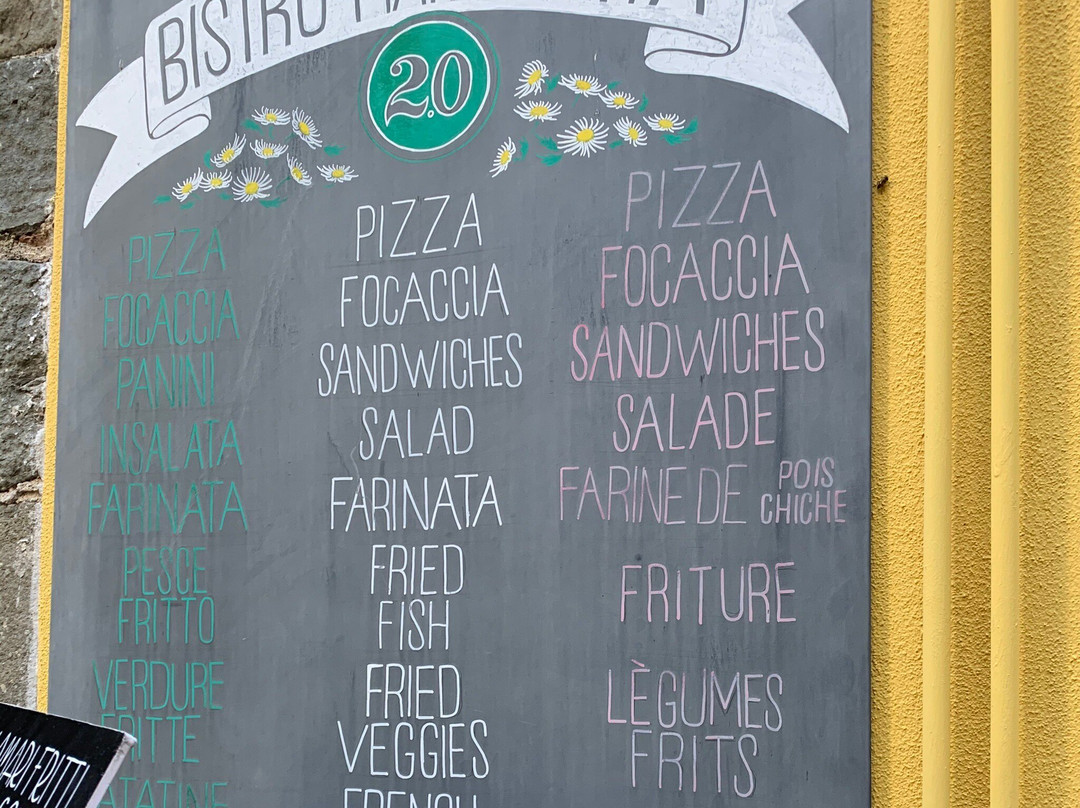 BISTRO
2.0
PIZZA
FOCACCIA
PANINI
INSALATA
FARINATA
PESCE
FRITTO
VERDURE
FRITTE
PIZZA
FOCACCIA
SANDWICHES
SALAD
FARINATA
FRIED
FISH
FRIED
VEGGIES
FRENCH
PIZZA
FOCACCIA
SANDWICHES
SALADE
FARINE DE POIS CHICHE
FRITURE
LÈGUMES
FRITS